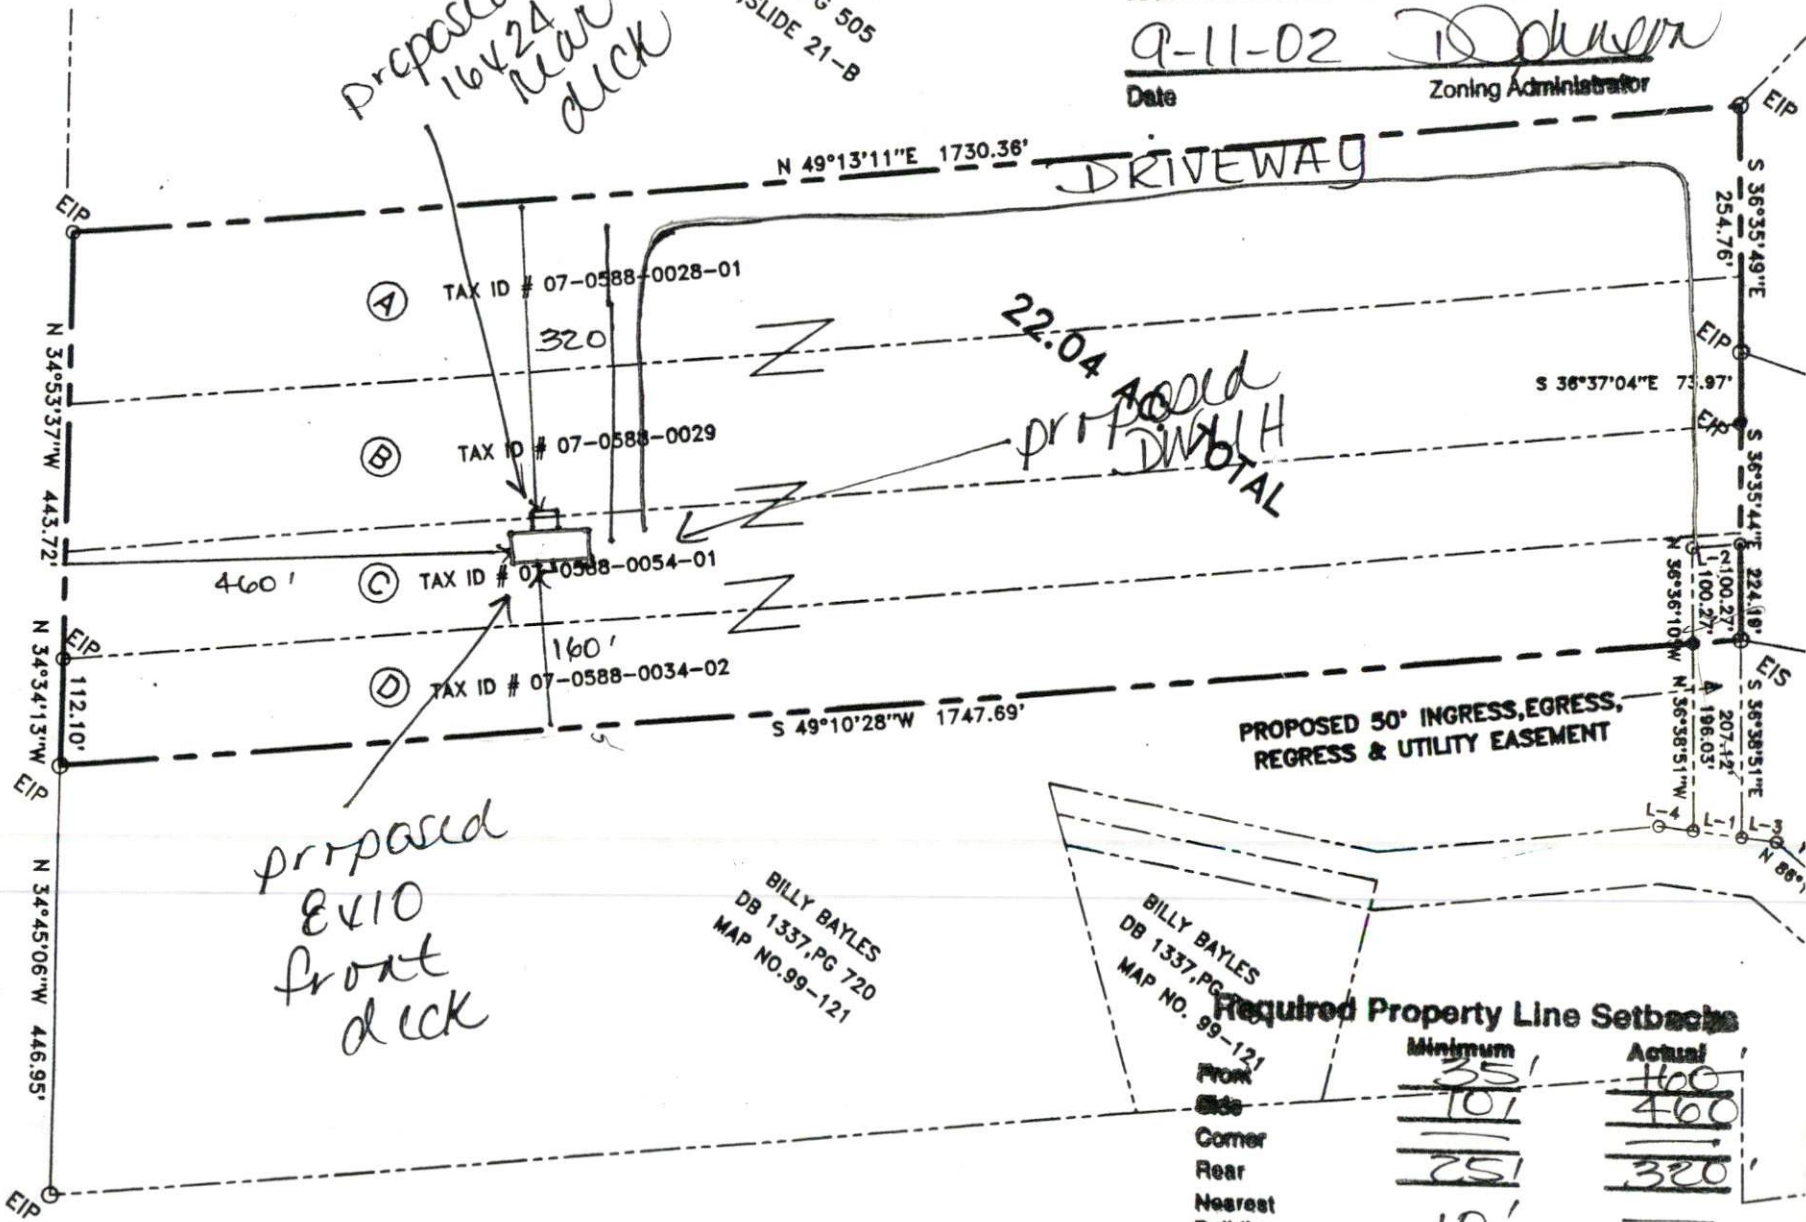 proposed
16x24
rear
deck
G 505
SLIDE 21-B
9-11-02 DJohnson
Date Zoning Administrator
EIP
N 49°13'11"E 1730.36'
DRIVEWAY
EIP
S 36°35'49"E
254.76'
A TAX ID # 07-0588-0028-01
320
22.04 AC
TOTAL
EIP
N 34°53'37"W 443.72'
S 36°37'04"E 73.97'
EIP
proposed
DWMH
B TAX ID # 07-0588-0029
S 36°35'44"E 224.19'
460'
C TAX ID # 07-0588-0054-01
N 36°36'10"W
100.27'
L-2
100.27'
EIP
160'
D TAX ID # 07-0588-0034-02
N 34°34'13"W
112.10'
EIS
S 49°10'28"W 1747.69'
PROPOSED 50' INGRESS,EGRESS,
REGRESS & UTILITY EASEMENT
N 36°38'51"W
196.03'
207.12'
S 36°38'51"E
EIP
L-4
L-1
L-3
N 86°
proposed
8x10
front
deck
N 34°45'06"W 446.95'
BILLY BAYLES
DB 1337,PG 720
MAP NO.99-121
BILLY BAYLES
DB 1337,PG
MAP NO. 99-121
Required Property Line Setbacks
Minimum Actual
Front 35' 160'
Side 10' 460
Corner — —
Rear 25' 320'
Nearest
10'
EIP